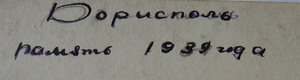 Борисполь
память 1939 года